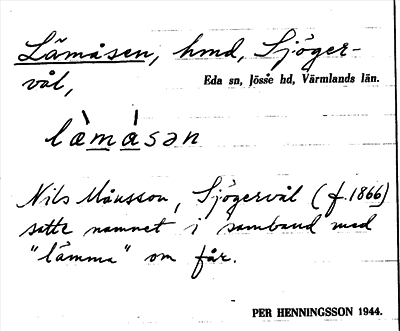 Lämåsen, hmd, Sjöger-
vål,
Eda sn, Jösse hd, Värmlands län.
lämåsən
Nils Månsson, Sjögervål (f. 1866)
satte namnet i samband med
"lämma" om får.
PER HENNINGSSON 1944.